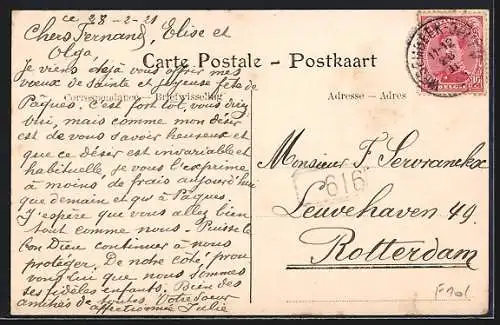 ce 28-2-21
Chers Fernand, Elise et
Olga,
Je viens déjà vous offrir mes
vœux de Sainte et joyeuse fête de
Pâques. C'est fort tôt, vous direz
oui, mais comme mon désir
est de vous savoir heureux et
que ce désir est invariable et
habituelle, je vous l'exprime
à moins de frais aujourd'hui
que demain et qu'à Pâques
J'espère que vous allez bien
tout comme nous. Puisse le
bon Dieu continuer à nous
protéger. De notre côté, prou
vons lui que nous sommes
ses fidèles enfants. Bien des
amitiés de toutes. Votre sœur
affectionnée Julie
Carte Postale - Postkaart
Correspondance - Briefwisseling
Adresse - Adres
616
Monsieur F. Servranckx
Leuvehaven 49.
Rotterdam